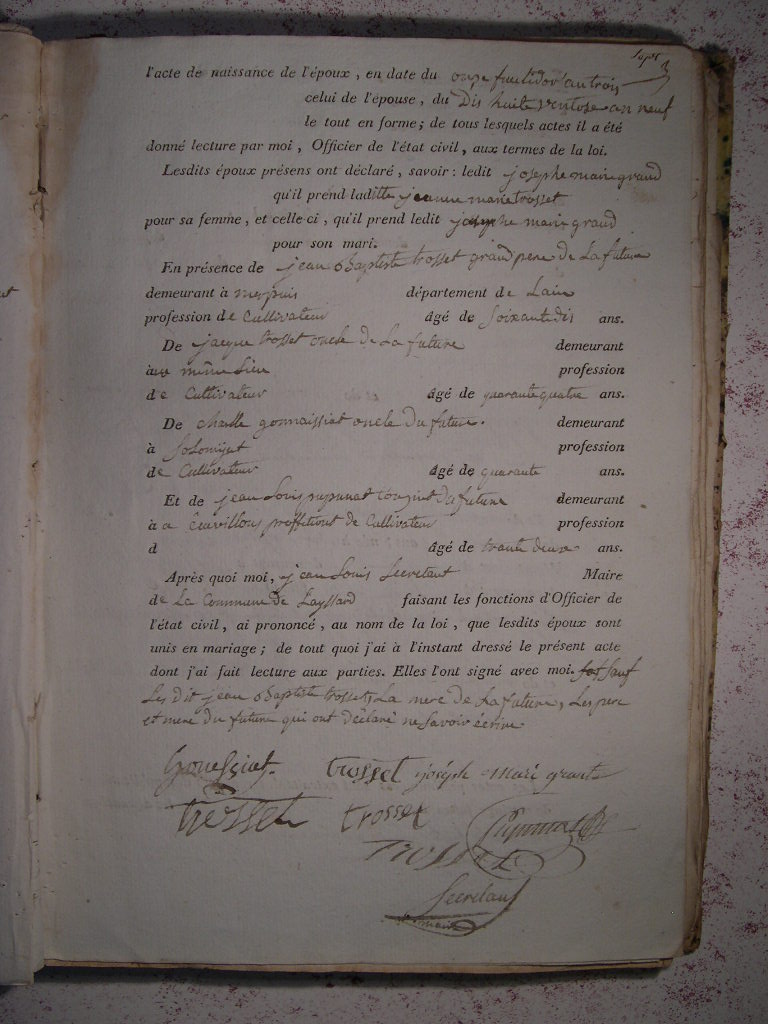 l'acte de naissance de l'époux, en date du onze fructidor an trois
celui de l'épouse, du Dis huite ventose an neuf
le tout en forme; de tous lesquels actes il a été
donné lecture par moi, Officier de l'état civil, aux termes de la loi.
Lesdits époux présens ont déclaré, savoir: ledit josephe marie grand
qu'il prend laditte jeanne marie trosset
pour sa femme, et celle-ci, qu'il prend ledit josephe marie grand
pour son mari.
En présence de jean Baptiste trosset grand pere de La future
demeurant à département de Lain
profession de Cultivateur âgé de Soixante dis ans.
De jacque trosset oncle de La future demeurant
au même Lieu profession
de Cultivateur âgé de quarante quatre ans.
De charle gonnaissiat oncle du future. demeurant
à Solomiat profession
de Cultivateur âgé de quarante ans.
Et de jean Louis pupunat Cousint du future demeurant
à a proffetiont de Cultivateur profession
d âgé de trante deux ans.
Après quoi moi, jean Louis Secretant Maire
de La Commune de Layssard faisant les fonctions d'Officier de
l'état civil, ai prononcé, au nom de la loi, que lesdits époux sont
unis en mariage; de tout quoi j'ai à l'instant dressé le présent acte
dont j'ai fait lecture aux parties. Elles l'ont signé avec moi. Sauf
Les dit jean Baptiste trosset, La mere de La future, Les pere
et mere du future qui ont déclaré ne Savoir écrire
trosset joséph Mari
trosset trosset
trosset
Secretant
maire